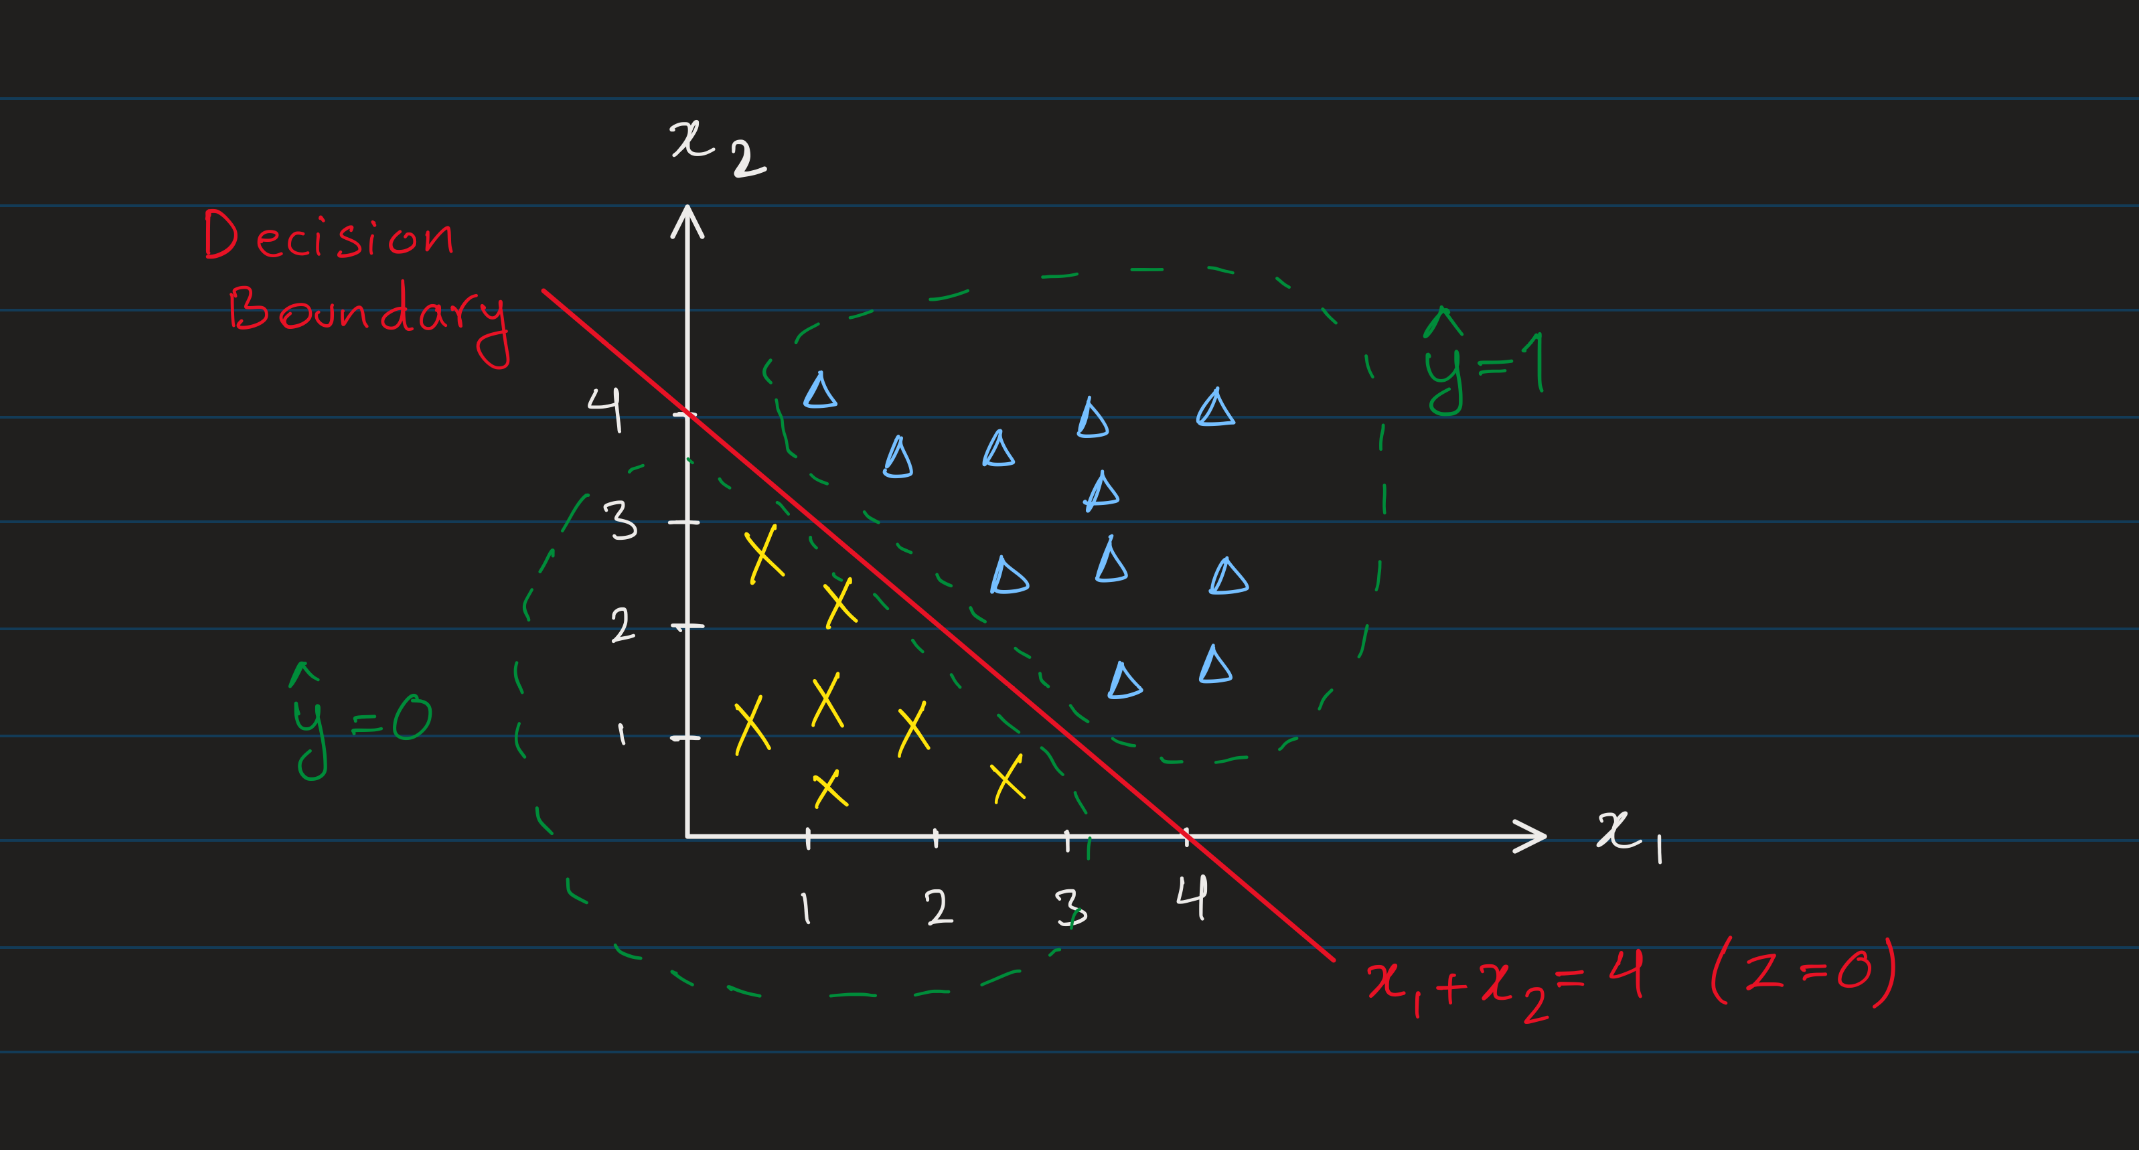 x₂
Decision
Boundary
ŷ=1
4
3
2
ŷ=0
1
x₁
1 2 3 4
x₁+x₂=4 (z=0)